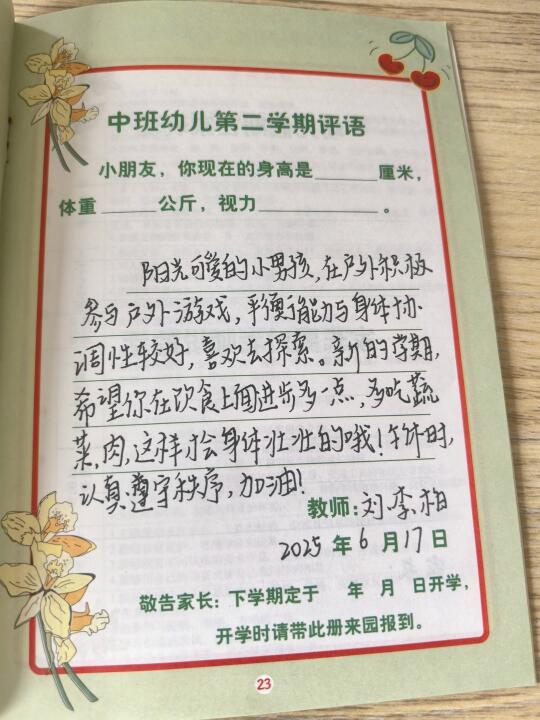 中班幼儿第二学期评语
小朋友，你现在的身高是______厘米，
体重______公斤，视力____________。
阳光可爱的小男孩，在户外积极
参与户外游戏，平衡能力与身体协
调性较好，喜欢去探索。新的学期，
希望你在饮食上面进步多一点，多吃蔬
菜，肉，这样才会身体壮壮的哦！午休时，
认真遵守秩序，加油！
教师：刘李柏
2025 年 6 月 17 日
敬告家长：下学期定于 年 月 日开学，
开学时请带此册来园报到。
23